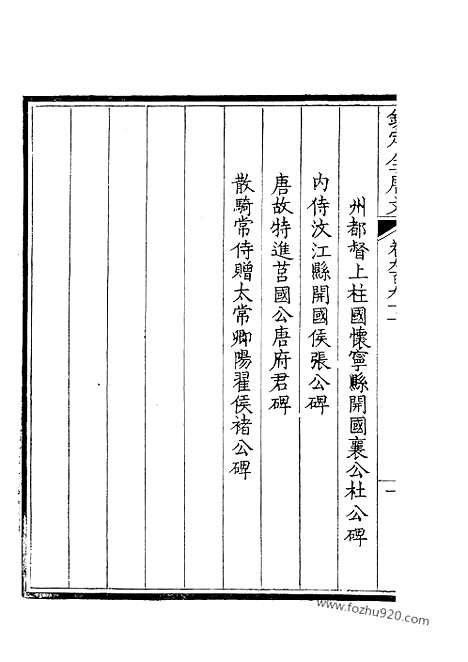 欽定全唐文
卷九百九十二
一
州都督上柱國懷寧縣開國襄公杜公碑
內侍汶江縣開國侯張公碑
唐故特進莒國公唐府君碑
散騎常侍贈太常卿陽翟侯褚公碑
www.fozhu920.com